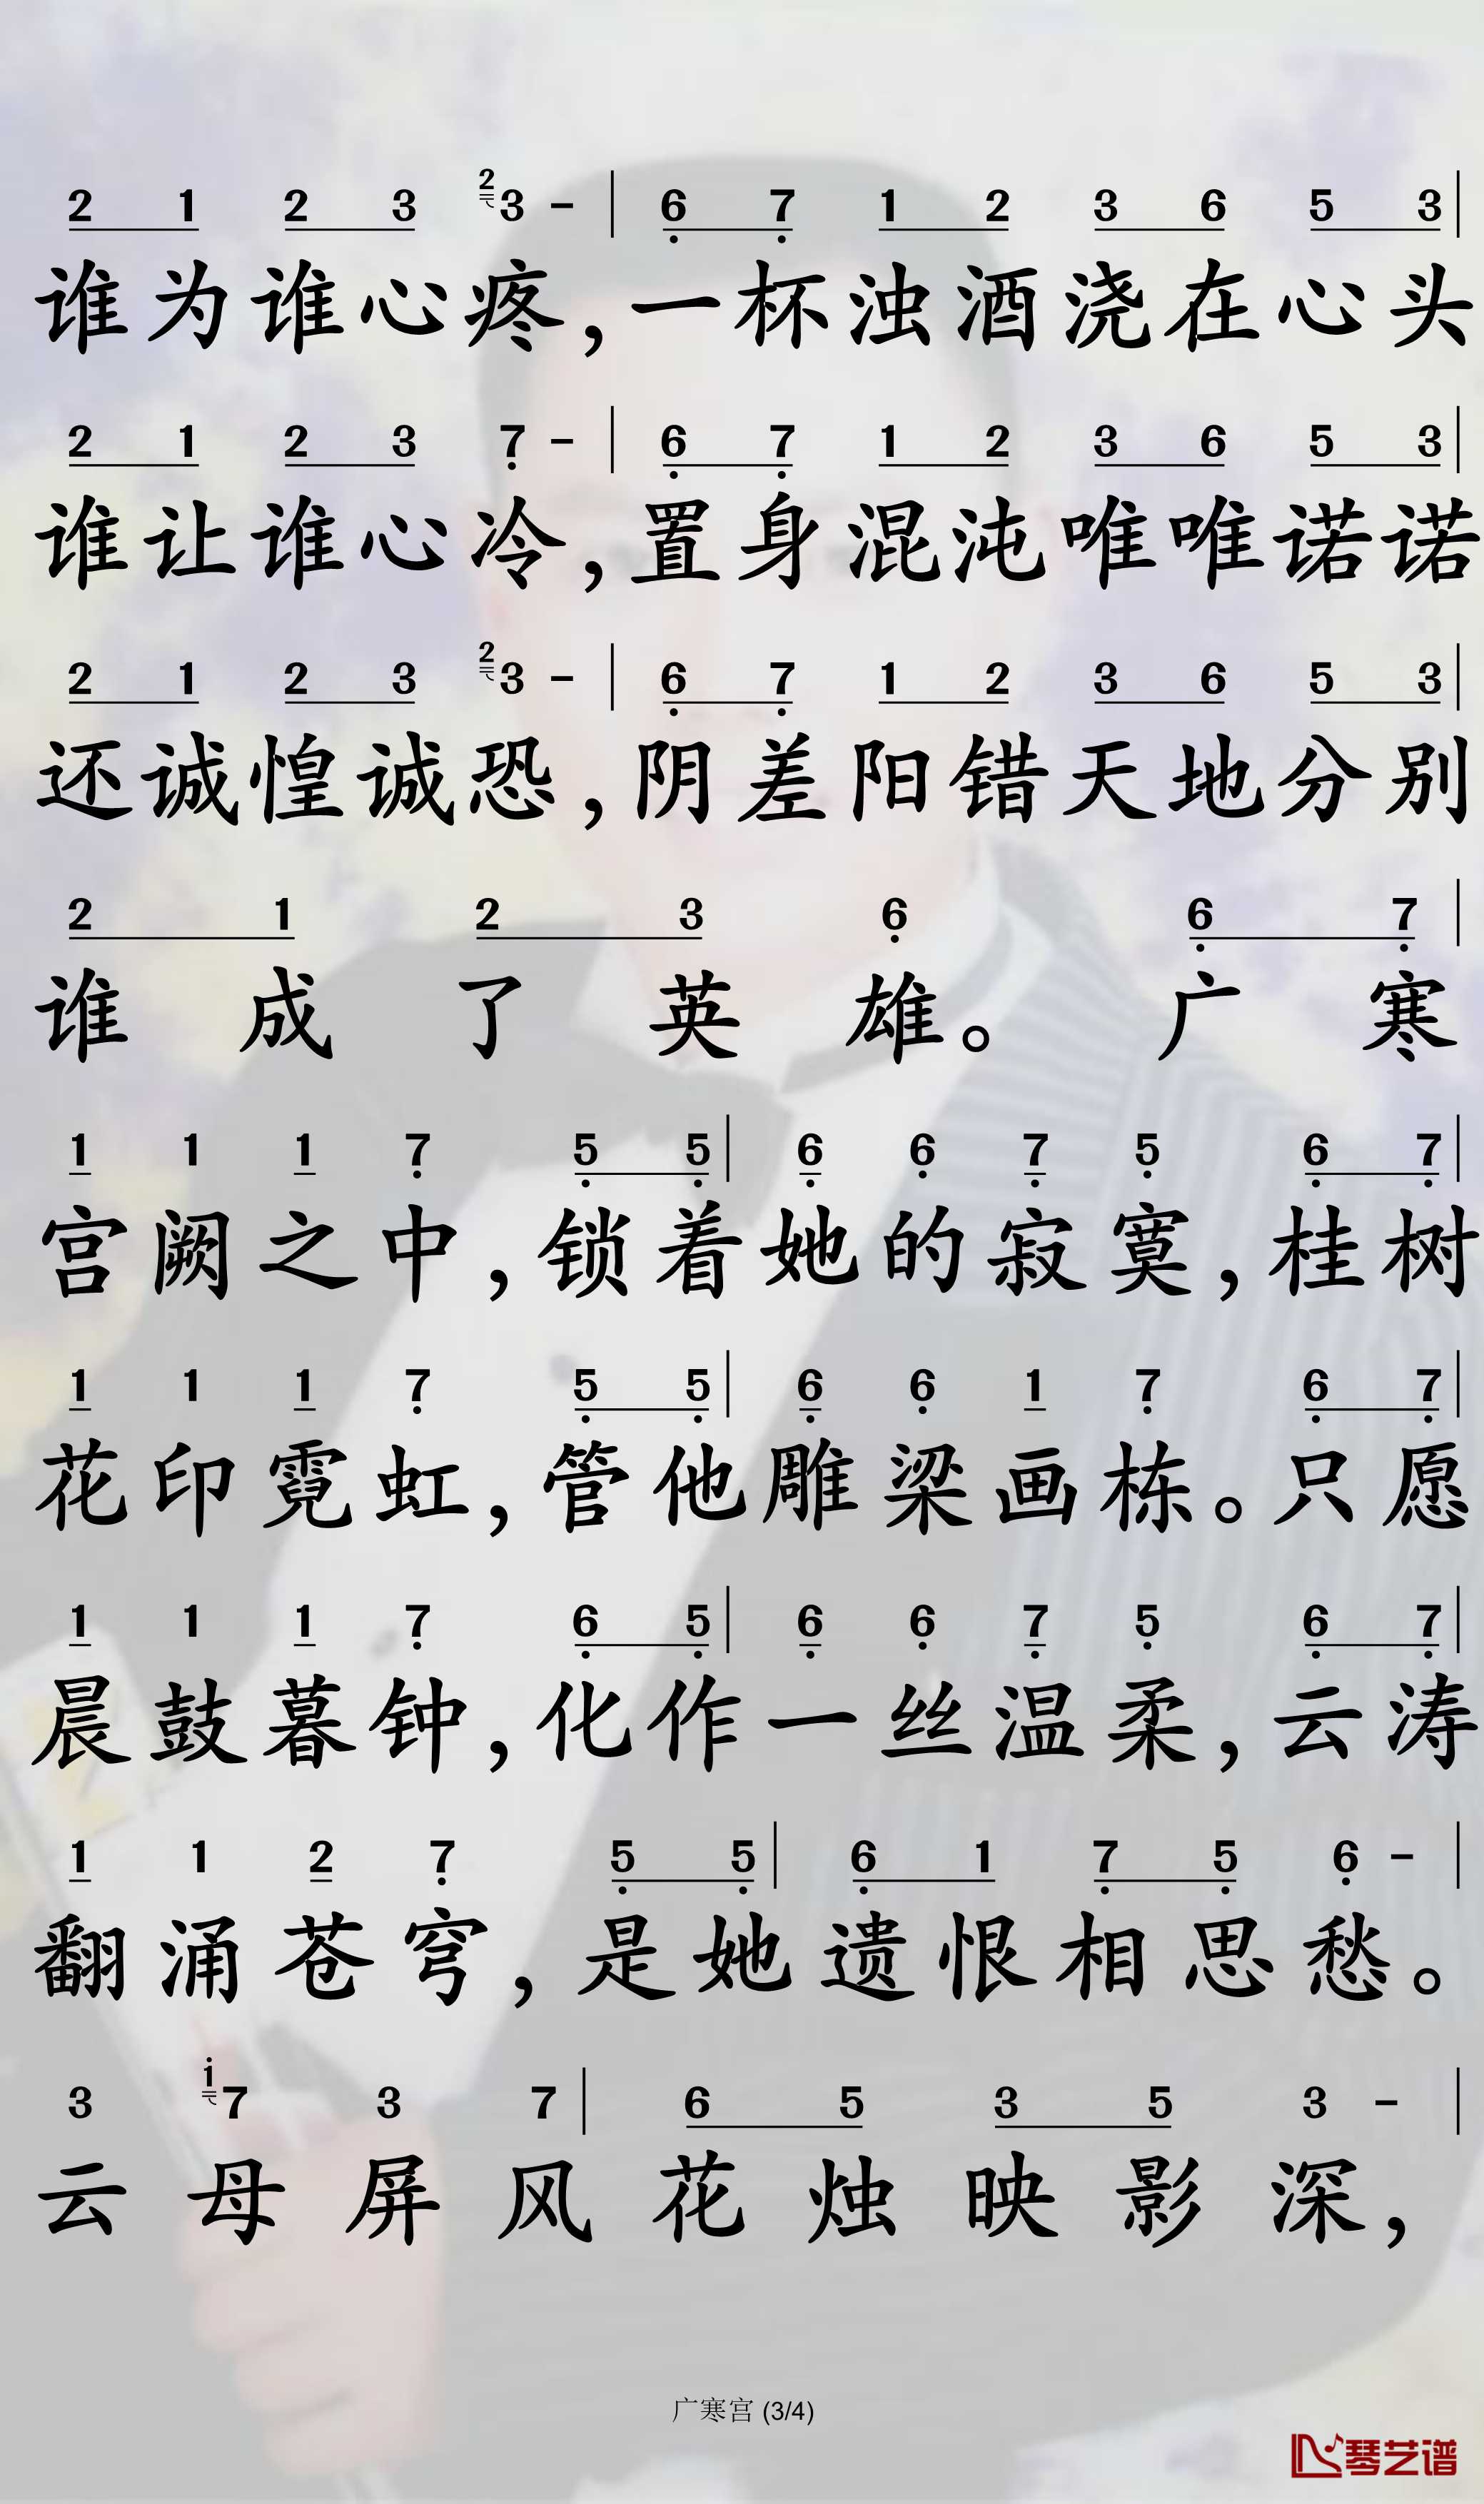 2 1 2 3 2 3 - | 6 7 1 2 3 6 5 3 |
谁为谁心疼，一杯浊酒浇在心头
2 1 2 3 7 - | 6 7 1 2 3 6 5 3 |
谁让谁心冷，置身混沌唯唯诺诺
2 1 2 3 2 3 - | 6 7 1 2 3 6 5 3 |
还诚惶诚恐，阴差阳错天地分别
2 1 2 3 6 6 7 |
谁成了英雄。广寒
1 1 1 7 5 5 | 6 6 7 5 6 7 |
宫阙之中，锁着她的寂寞，桂树
1 1 1 7 5 5 | 6 6 1 7 6 7 |
花印霓虹，管他雕梁画栋。只愿
1 1 1 7 6 5 | 6 6 7 5 6 7 |
晨鼓暮钟，化作一丝温柔，云涛
1 1 2 7 5 5 | 6 1 7 5 6 - |
翻涌苍穹，是她遗恨相思愁。
3 i 7 3 7 | 6 5 3 5 3 - |
云母屏风花烛映影深，
广寒宫 (3/4)
琴艺谱